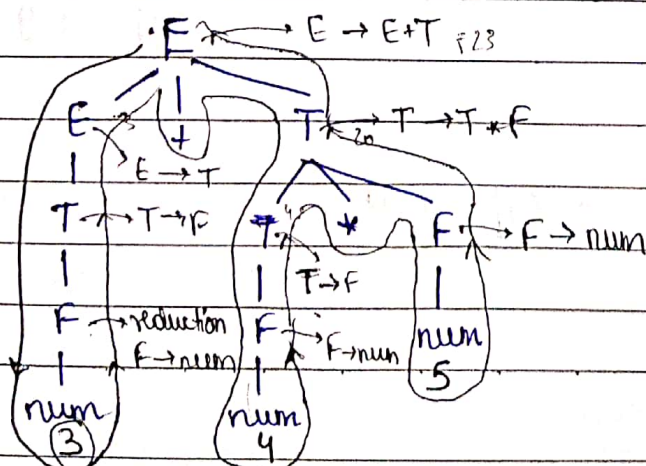 E → E → E+T 23
E + T → T → T * F
20
E → T
T → T → F T * F → F → num
T → F
F → reduction F → F → num num
F → num 5
num num
3 4